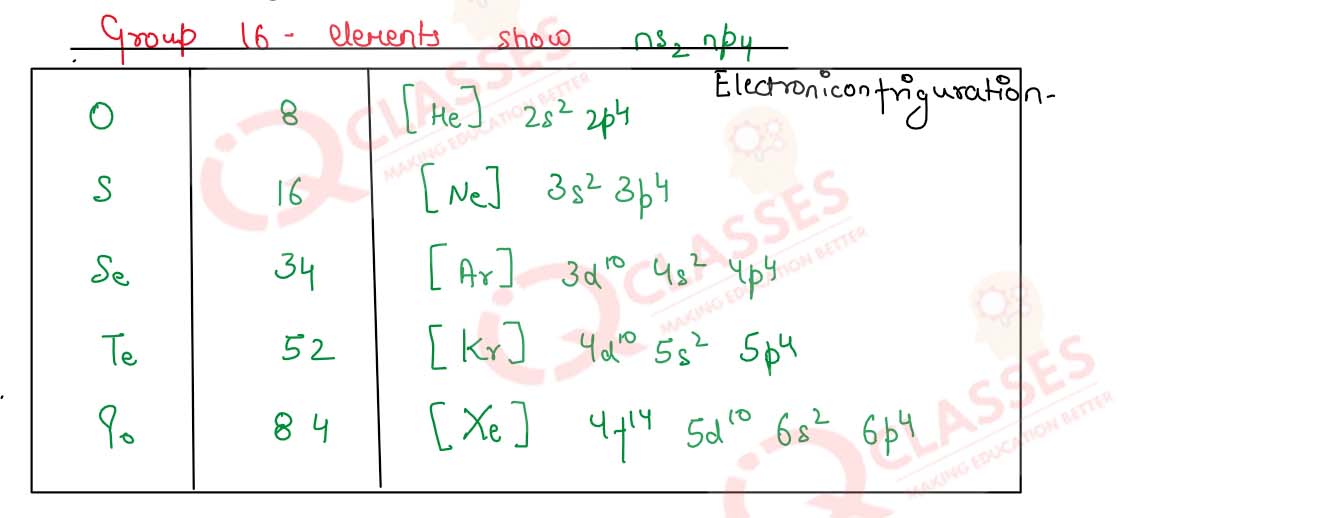 Group 16 - elements show ns₂ np₄
Electroniconfriguration-
O 8 [He] 2s² 2p⁴
S 16 [Ne] 3s² 3p⁴
Se 34 [Ar] 3d¹⁰ 4s² 4p⁴
Te 52 [Kr] 4d¹⁰ 5s² 5p⁴
Po 84 [Xe] 4f¹⁴ 5d¹⁰ 6s² 6p⁴
IQ CLASSES
MAKING EDUCATION BETTER
IQ CLASSES
MAKING EDUCATION BETTER
IQ CLASSES
MAKING EDUCATION BETTER